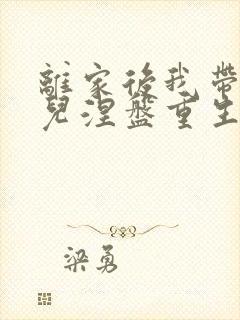 離家後我帶
兒涅盤重生
梁勇